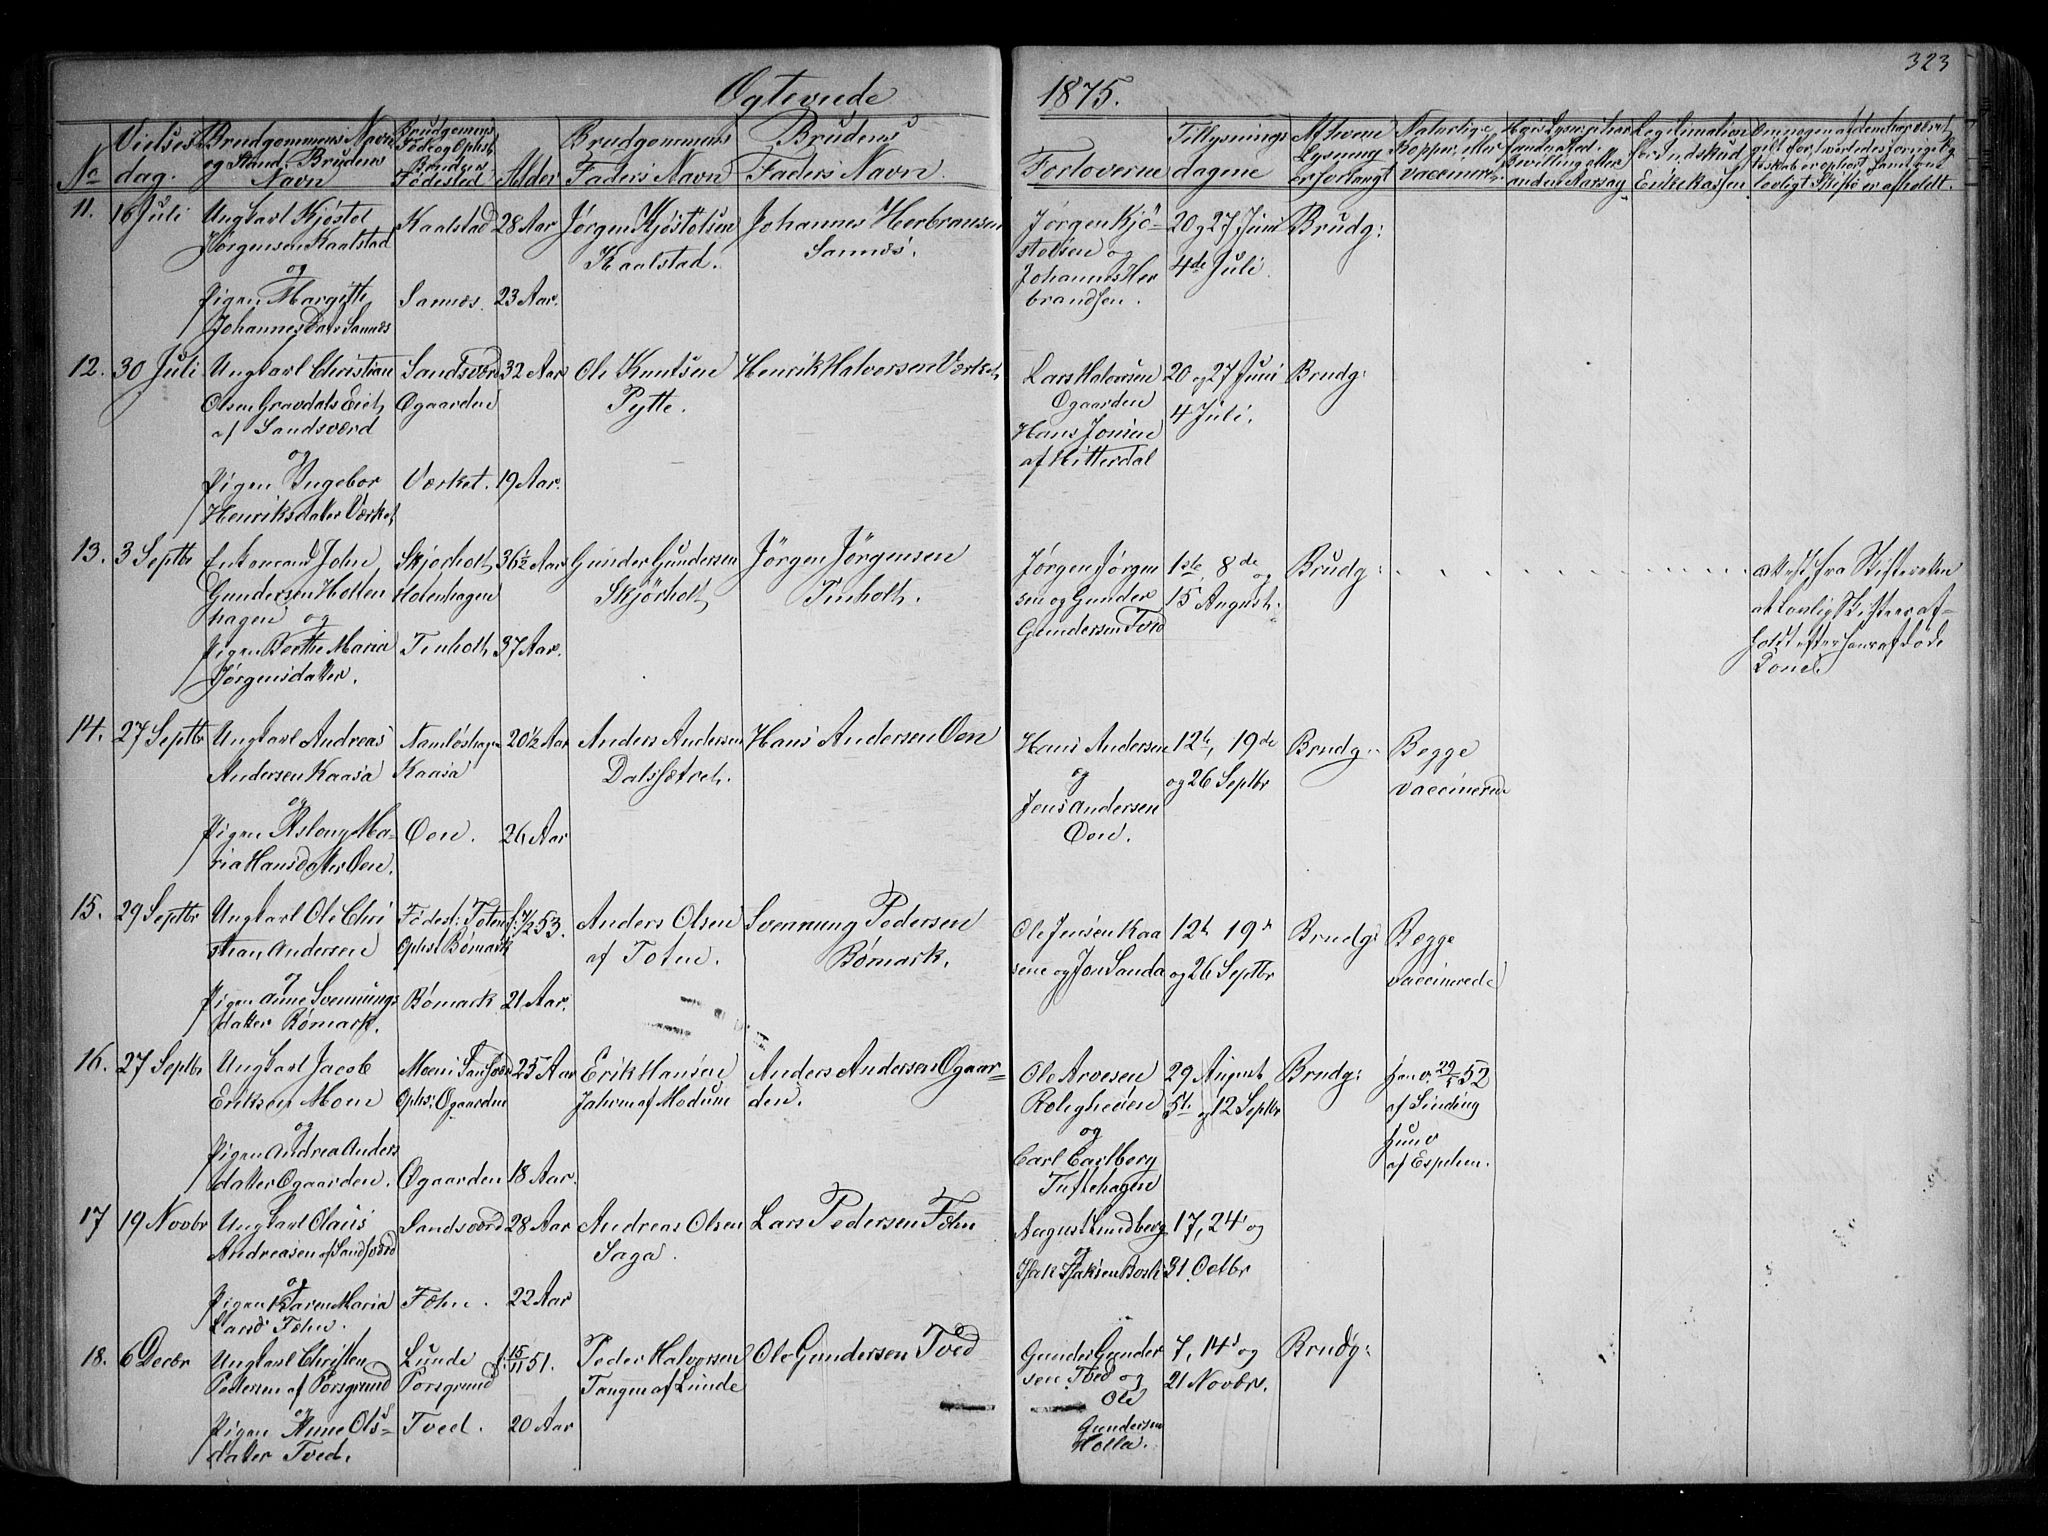 323
Ogteviede 1875.
No
Vielses dag.
Brudgommens Navn og Stand, Brudens Navn
Brudgommens Fode og Opholdst, Brudens Fødested
Alder
Brudgommens Faders Navn
Brudens Faders Navn.
Forloverne
Tillysnings dagene
Af hvem Lysning er forlangt
Naturlige Kopper eller vaccineret
Bevilling eller anden Aarsag
Legitimation for Indskud i Enkekassen
11. 16 Juli
Ungkarl Kjøstol
Jørgensen Kaalstad
og
Pigen Margitte
Johannesdatr Sannes
Kaalstad 28 Aar
Sannes. 23 Aar.
Jørgen Kjöstolsen
Kaalstad.
Johannes Herbransen
Sannes.
Jørgen Kjö-
stolsen og
Johannes Her
brandsen.
20 og 27 Juni
4de Juli.
Brudg:
12. 30 Juli
Ungkarl Christian
Olsen Gravdals Eie
af Sandsværd
og
Pigen Ingebor
Henriksdatter Værket
Sandsværd 32 Aar
Ogaarden
Værket. 19 Aar.
Ole Knutsen
Pytte.
Henrik Halvorsen Værket
Lars Halvorsen
Ogaarden
Hans Jonsen
af Hitterdal
20 og 27 Juni
4 Juli.
Brudg:
13. 3 Septbr
Enkemand John
Gundersen Holten
hagen og
Pigen Berthe Maria
Jørgensdatter.
Skjorholt 36½ Aar
Holenhagen
Tinholt 37 Aar.
Gunder Gundersen
Skjörholt
Jörgen Jörgensen
Tinholt.
Jørgen Jørgen
sen og Gunder
Gundersen Tved
1ste, 8de og
15 August.
Brudg:
Attest fra Skifteretten
at lovlig Skifte er af-
holdt efter hans afdøde
Kone
14. 27 Septbr
Ungkarl Andreas
Andersen Kaasa
og
Pigen Aslaug Ma-
ria Hansdatter Oen.
Namløshagen 20½ Aar
Kaasa
Oen. 26 Aar
Anders Andersen
Dalsætret.
Hans Andersen Oen
Hans Andersen
og
Jens Andersen
Oen.
12te, 19de
og 26 Septbr
Brudg:
Begge
vaccinerede
15. 29 Septbr
Ungkarl Ole Chri
stian Andersen
og
Pigen Anne Svennungs
datter Bømark.
Fødest: Toten
Ophst Bømark
Bømark 21 Aar.
Anders Olsen
af Toten.
Svennung Pedersen
Bømark.
Ole Jensen Kaa
sene og Jon Sanda
12te 19de
og 26 Septbr
Brudg:
Begge
vaccinerede
16. 27 Septbr
Ungkarl Jacob
Eriksen Moen
og
Pigen Andrea Anders
datter Ogaarden.
Moen i Sansværd 25 Aar
Ophs: Ogaarden
Ogaarden 18 Aar.
Erik Hansen
Jahren af Modum
Anders Andersen Ogaar-
den.
Ole Arvesen
Roligheden
og
Carl Carlberg
Tuftehagen
29 August
5te og 12 Septbr
Brudg:
han v. 29/5 52
af Sinding
hun v
af Espelien.
17 19 Novbr
Ungkarl Olaus
Andreasen af Sandsværd
og
Pigen Karen Maria
Larsd Føhn.
Sandsværd 28 Aar
Føhn. 22 Aar
Andreas Olsen
Saga.
Lars Pedersen Føhn
August Lundberg
og
Isak Isaksen Bosli
17, 24 og
31 Octbr
18. 6 Decbr
Ungkarl Christen
Pedersen af Porsgrund
og
Pigen Anne Ols-
datter Tved.
Lunde f. 15/11 51.
Porsgrund
Tved. 20 Aar
Peder Halvorsen
Tangen af Lunde
Ole Gundersen Tved
Gunder Gunder
sen Tved og
Ole
Gundersen
Holla.
7, 14 og
21 Novbr.
Brudg: